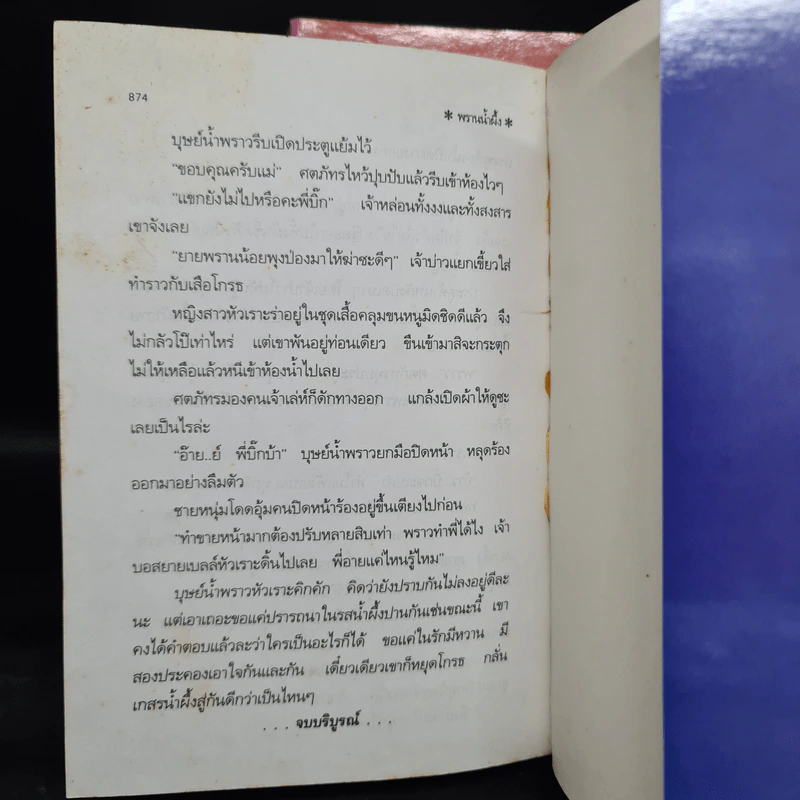 874
* พรานน้ำผึ้ง *
บุษย์น้ำพราวรีบเปิดประตูแย้มไว้
"ขอบคุณครับแม่" ศตภัทรไหว้ปุบปับแล้วรีบเข้าห้องไวๆ
"แขกยังไม่ไปหรือคะพี่บิ๊ก" เจ้าหล่อนทั้งงงและทั้งสงสาร
เขาจังเลย
"ยายพรานน้อยพุงป่องมาให้ฆ่าซะดีๆ" เจ้าบ่าวแยกเขี้ยวใส่
ทำราวกับเสือโกรธ
หญิงสาวหัวเราะร่าอยู่ในชุดเสื้อคลุมขนหนูมิดชิดดีแล้ว จึง
ไม่กลัวโป๊เท่าไหร่ แต่เขาพันอยู่ท่อนเดียว ขืนเข้ามาสิจะกระตุก
ไม่ให้เหลือแล้วหนีเข้าห้องน้ำไปเลย
ศตภัทรมองคนเจ้าเล่ห์ก็ดักทางออก แกล้งเปิดผ้าให้ดูซะ
เลยเป็นไรล่ะ
"อ๊าย..ย์ พี่บิ๊กบ้า" บุษย์น้ำพราวยกมือปิดหน้า หลุดร้อง
ออกมาอย่างลืมตัว
ชายหนุ่มโดดอุ้มคนปิดหน้าร้องอยู่ขึ้นเตียงไปก่อน
"ทำขายหน้ามากต้องปรับหลายสิบเท่า พราวทำพี่ได้ไง เจ้า
บอสยายเบลล์หัวเราะดิ้นไปเลย พี่อายแค่ไหนรู้ไหม"
บุษย์น้ำพราวหัวเราะคิกคัก คิดว่ายังปราบกันไม่ลงอยู่ดีละ
นะ แต่เอาเถอะขอแค่ปรารถนาในรสน้ำผึ้งปานกันเช่นขณะนี้ เขา
คงได้คำตอบแล้วละว่าใครเป็นอะไรก็ได้ ขอแค่ในรักมีหวาน มี
สองประคองเอาใจกันและกัน เดี๋ยวเดียวเขาก็หยุดโกรธ กลั่น
เกสรน้ำผึ้งสู่กันดีกว่าเป็นไหนๆ
. . . จบบริบูรณ์ . . .